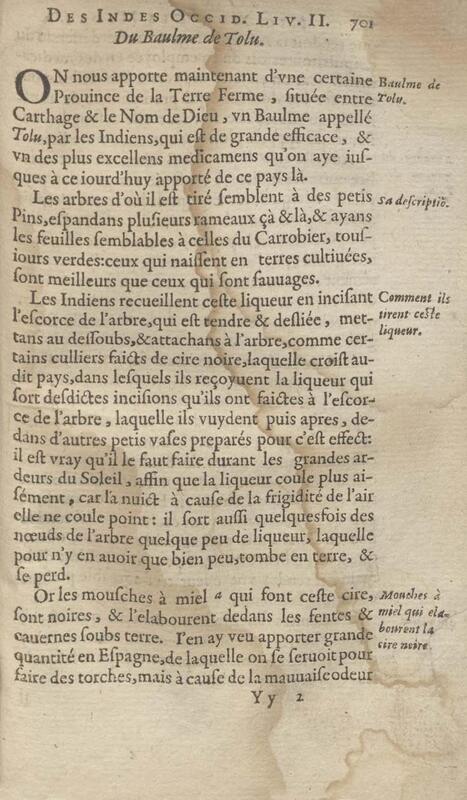 DES INDES OCCID. LIV. II. 701
Du Baulme de Tolu.
ON nous apporte maintenant d'vne certaine
Prouince de la Terre Ferme, située entre
Carthage & le Nom de Dieu, vn Baulme appellé
Tolu, par les Indiens, qui est de grande efficace, &
vn des plus excellens medicamens qu'on aye ius-
ques à ce iourd'huy apporté de ce païs là.
Baulme de
Tolu.
Les arbres d'où il est tiré semblent à des petis
Pins, espandans plusieurs rameaux çà & là, & ayans
les feuilles semblables à celles du Carrobier, tous-
iours verdes: ceux qui naissent en terres cultiuées,
sont meilleurs que ceux qui sont sauuages.
Sa descriptiõ.
Les Indiens recueillent ceste liqueur en incisant
l'escorce de l'arbre, qui est tendre & desliée, met-
tans au dessoubs, & attachans à l'arbre, comme cer-
tains culliers faicts de cire noire, laquelle croist au-
dit pays, dans lesquels ils reçoyuent la liqueur qui
sort desdictes incisions qu'ils ont faictes à l'escor-
ce de l'arbre, laquelle ils vuydent puis apres, de-
dans d'autres petis vases preparés pour c'est effect:
il est vray qu'il le faut faire durant les grandes ar-
deurs du Soleil, affin que la liqueur coule plus ai-
sément, car la nuict à cause de la frigidité de l'air
elle ne coule point: il sort aussi quelquesfois des
nœuds de l'arbre quelque peu de liqueur, laquelle
pour n'y en auoir que bien peu, tombe en terre, &
se perd.
Comment ils
tirent ceste
liqueur.
Or les mousches à miel a qui font ceste cire,
sont noires, & l'elabourent dedans les fentes &
cauernes soubs terre. I'en ay veu apporter grande
quantité en Espagne, de laquelle on se seruoit pour
faire des torches, mais à cause de la mauuaise odeur
Mouches à
miel qui ela-
bourent la
cire noire.
Yy 2